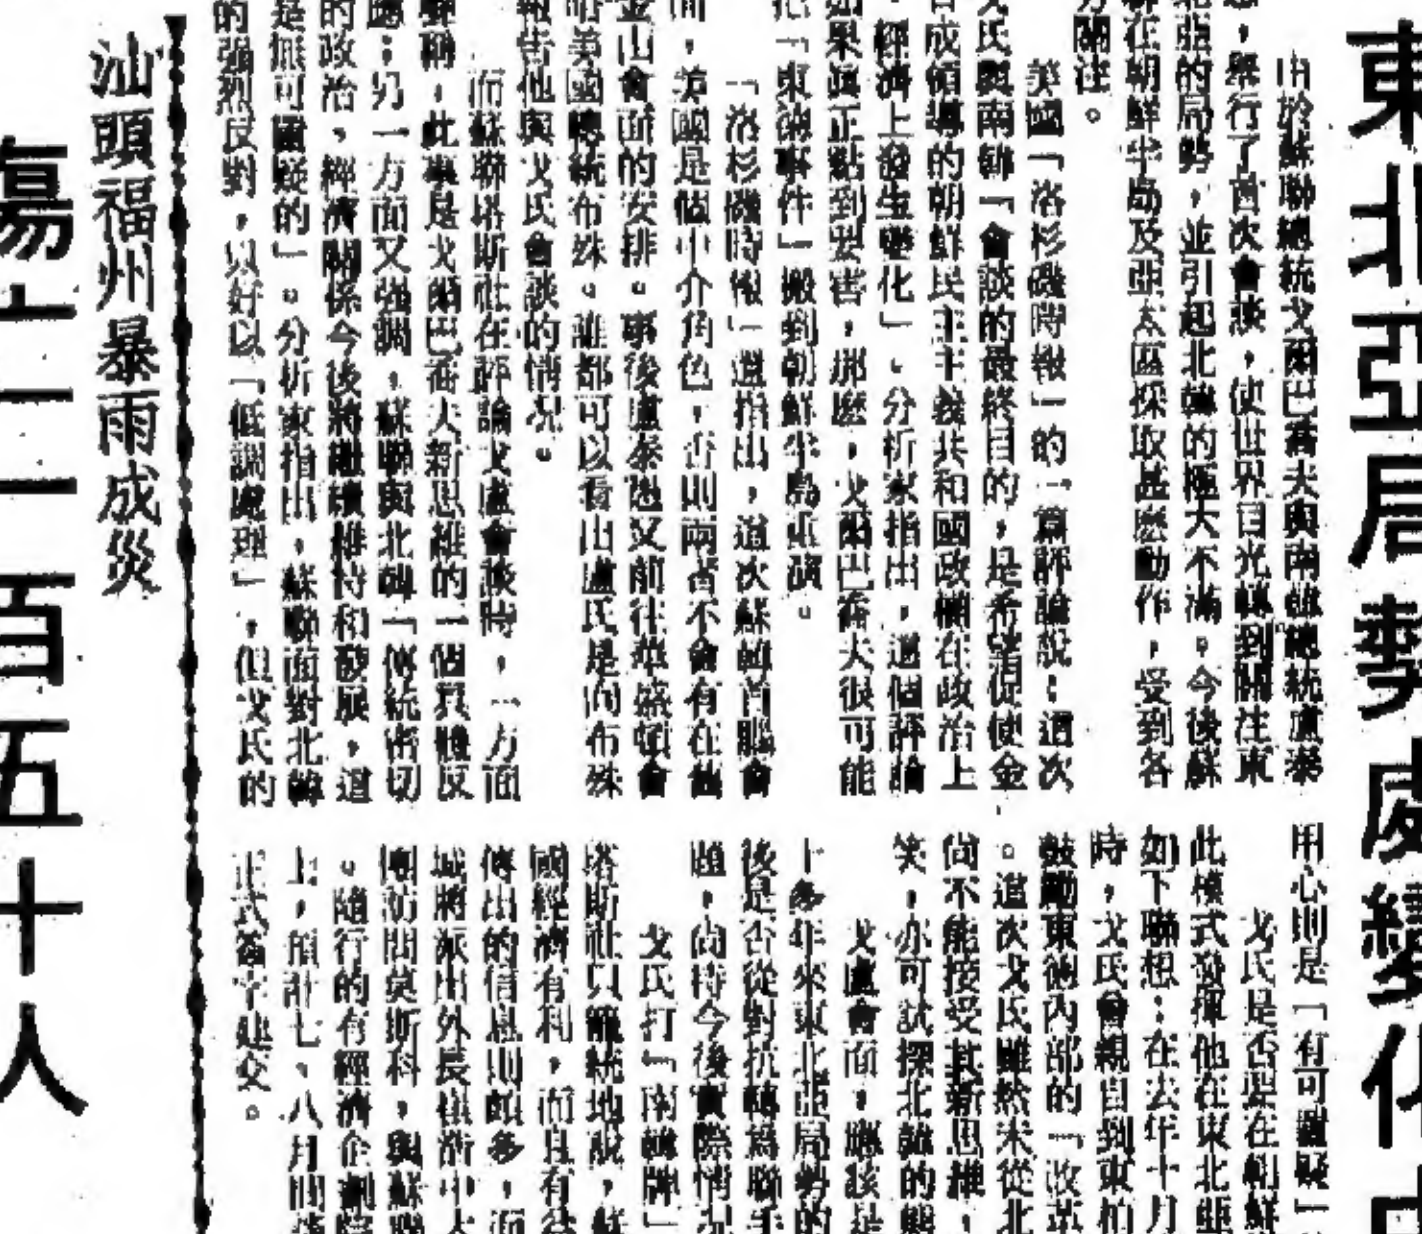 東北亞局勢處變化中
由於蘇聯總統戈爾巴喬夫與南韓總統盧泰
,舉行了首次會談,使世界目光轉到關注東
北亞的局勢,並引起北韓的極大不滿。今後蘇
聯在朝鮮半島及亞太區採取甚麽動作,受到各
方關注。
美國「洛杉磯時報」的一篇評論說:這次
戈氏與南韓「會談的最終目的,是希望促使金
日成領導的朝鮮民主主義共和國政權在政治上
、經濟上發生變化」。分析家指出,這個評論
如果眞正點到要害,那麽,戈爾巴喬夫很可能
把「東歐事件」搬到朝鮮半島重演。
「洛杉磯時報」還指出,這次蘇韓首腦會
面,美國是個中介角色,否則兩者不會有在舊
金山會面的安排。事後盧泰愚又前往華盛頓會
晤美國總統布殊。誰都可以看出盧氏是向布殊
報告他與戈氏會談的情况。
而蘇聯塔斯社在評論戈盧會談時,一方面
聲稱,此事是戈爾巴喬夫新思維的一個具體反
應;另一方面又強調,蘇聯與北韓「傳統密切
的政治,經濟關係今後將繼續維持和發展,這
是無可置疑的」。分析家指出,蘇聯面對北韓
的强烈反對,只好以「低調處理」,但戈氏的
用心則是「有可置疑」
戈氏是否要在朝鮮
此模式發揮他在東北亞
如下聯想:在去年十月
時,戈氏曾親自到東柏
鼓動東德內部的「改革
。這次戈氏雖然未從北
尚不能接受其新思維,
笑,亦可試探北韓的態
戈盧會面,應該是
十多年來東北亞局勢的
後是否從對抗轉爲聯手
題,尚待今後實際情况
戈氏打「南韓牌」
塔斯社只籠統地說,蘇
國經濟有利,而且有待
傳出的信息則頗多,面
城將派出外長
團訪問莫斯科,與蘇聯
。隨行的有經濟企劃院
上,預計七、八月間
正式簽字建交。
汕頭福州暴雨成災
傷亡二百五十人